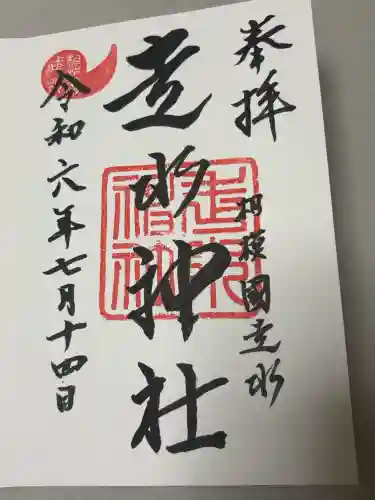 奉拝
相模國走水
走水神社
令和六年七月十四日